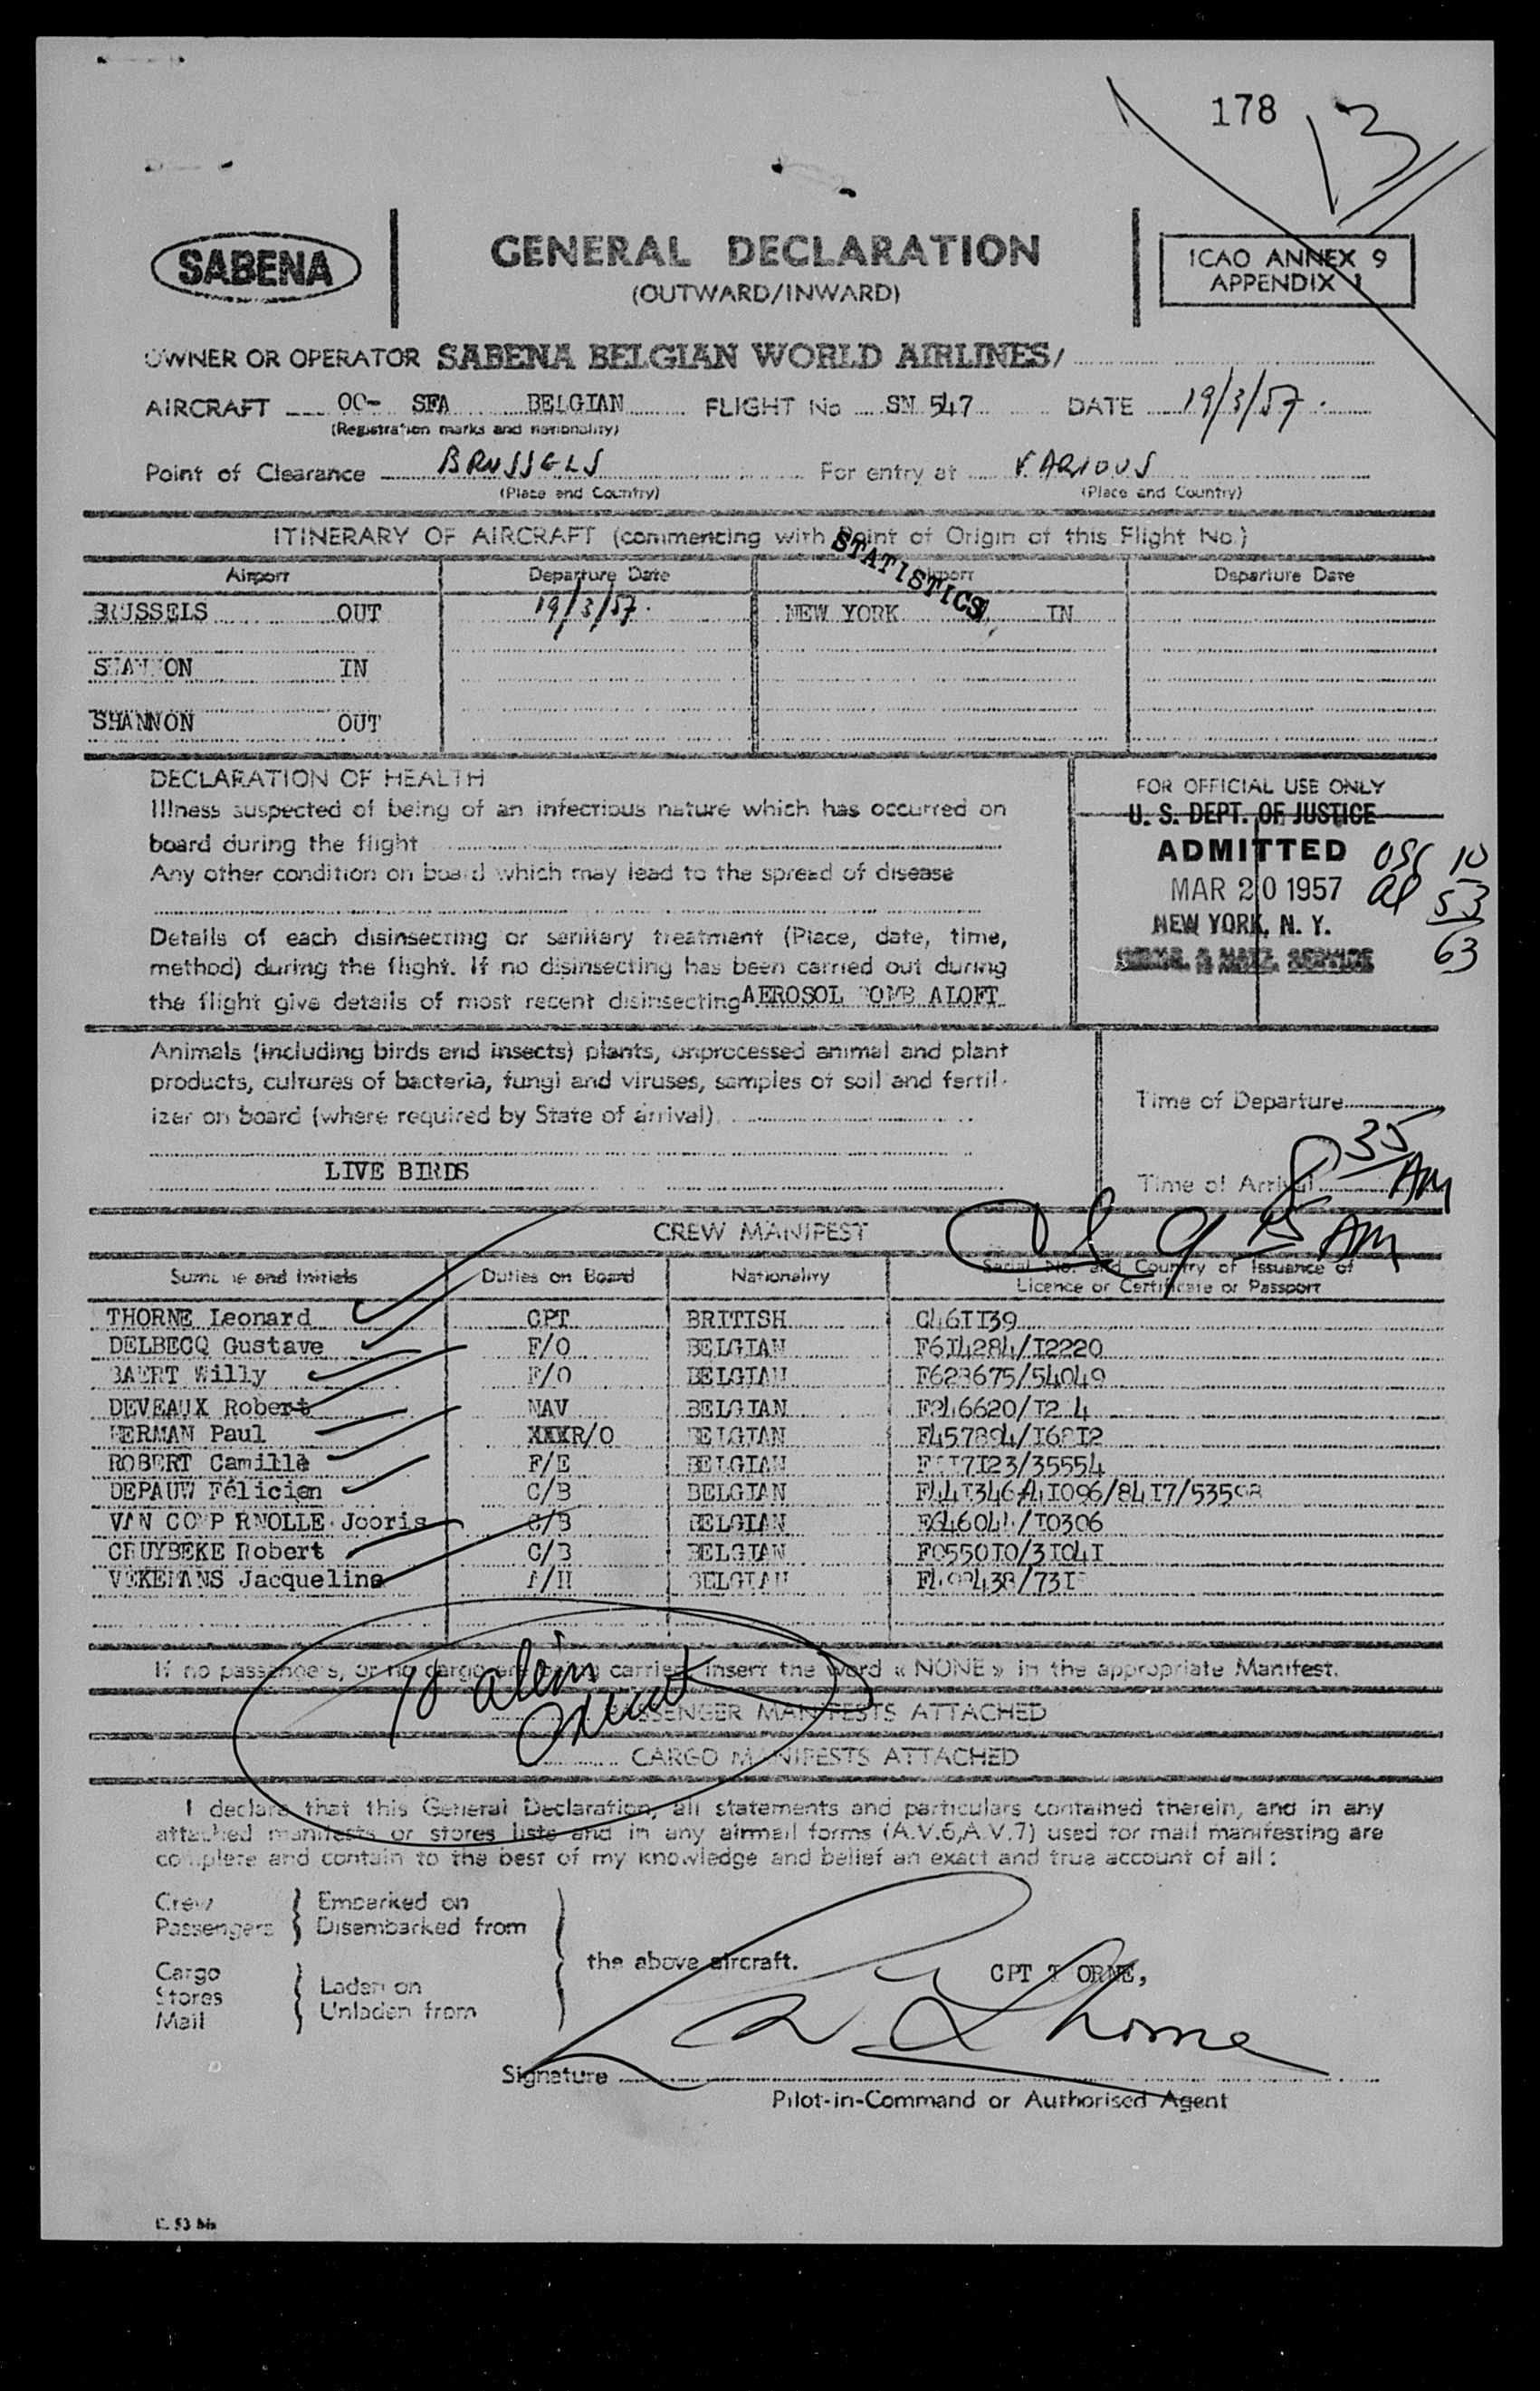 178
13
SABENA
GENERAL DECLARATION
(OUTWARD/INWARD)
ICAO ANNEX 9
APPENDIX 1
OWNER OR OPERATOR SABENA BELGIAN WORLD AIRLINES/
AIRCRAFT OO- SFA BELGIAN FLIGHT No SN 547 DATE 19/3/57.
(Registration marks and nationality)
Point of Clearance BRUSSELS For entry at VARIOUS
(Place and Country) (Place and Country)
ITINERARY OF AIRCRAFT (commencing with Point of Origin of this Flight No.)
STATISTICS
Airport Departure Date Airport Departure Date
BRUSSELS OUT 19/3/57. NEW YORK IN
SHANNON IN
SHANNON OUT
DECLARATION OF HEALTH
Illness suspected of being of an infectious nature which has occurred on
board during the flight
Any other condition on board which may lead to the spread of disease
Details of each disinsecting or sanitary treatment (Place, date, time,
method) during the flight. If no disinsecting has been carried out during
the flight give details of most recent disinsecting AEROSOL BOMB ALOFT
FOR OFFICIAL USE ONLY
U. S. DEPT. OF JUSTICE
ADMITTED
MAR 20 1957
NEW YORK, N. Y.
IMMIG. & NATZ. SERVICE
10
53
63
Animals (including birds and insects) plants, unprocessed animal and plant
products, cultures of bacteria, fungi and viruses, samples of soil and fertil-
izer on board (where required by State of arrival).
LIVE BIRDS
Time of Departure
Time of Arrival 8 35 AM
CREW MANIFEST
Surname and Initials Duties on Board Nationality Serial No. and Country of Issuance of
Licence or Certificate or Passport
THORNE Leonard CPT BRITISH C46II39
DELBECQ Gustave F/O BELGIAN F6I4284/I2220
BAERT Willy F/O BELGIAN
DEVEAUX Robert NAV BELGIAN
HERMAN Paul XXXR/O BELGIAN
ROBERT Camille F/E BELGIAN
DEPAUW Félicien C/B BELGIAN
VAN Jooris C/B BELGIAN
CRUYBEKE Robert C/B BELGIAN F0550I0/3I04I
VEKEMANS Jacqueline A/H BELGIAN
If no passengers, or no cargo are being carried, insert the word « NONE » in the appropriate Manifest.
10 alien
PASSENGER MANIFESTS ATTACHED
CARGO MANIFESTS ATTACHED
I declare that this General Declaration, all statements and particulars contained therein, and in any
attached manifests or stores lists and in any airmail forms (A.V.6,A.V.7) used for mail manifesting are
complete and contain to the best of my knowledge and belief an exact and true account of all :
Crew Embarked on
Passengers Disembarked from
the above aircraft.
Cargo
Stores Laden on
Mail Unladen from
CPT THORNE,
Thorne
Signature
Pilot-in-Command or Authorised Agent
C. 53 bis